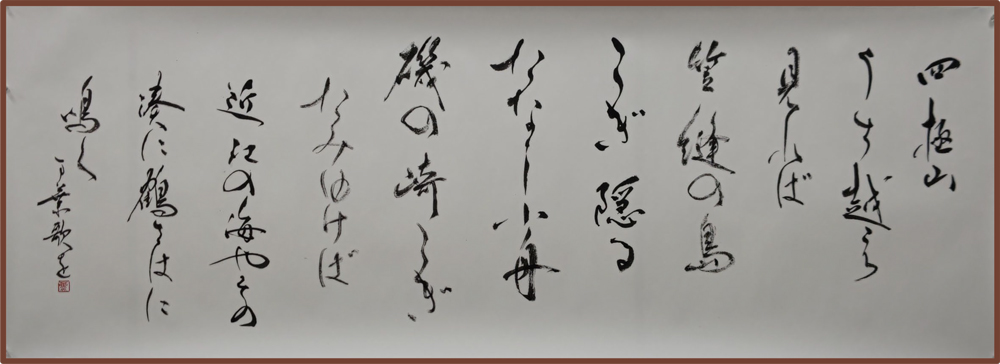 四極山
うち越え
見れば
笠縫の島
こぎ隠る
たななし小舟
磯の崎こぎ
たみゆけば
近江の海やその
湊に鶴さはに
鳴く
万葉歌を